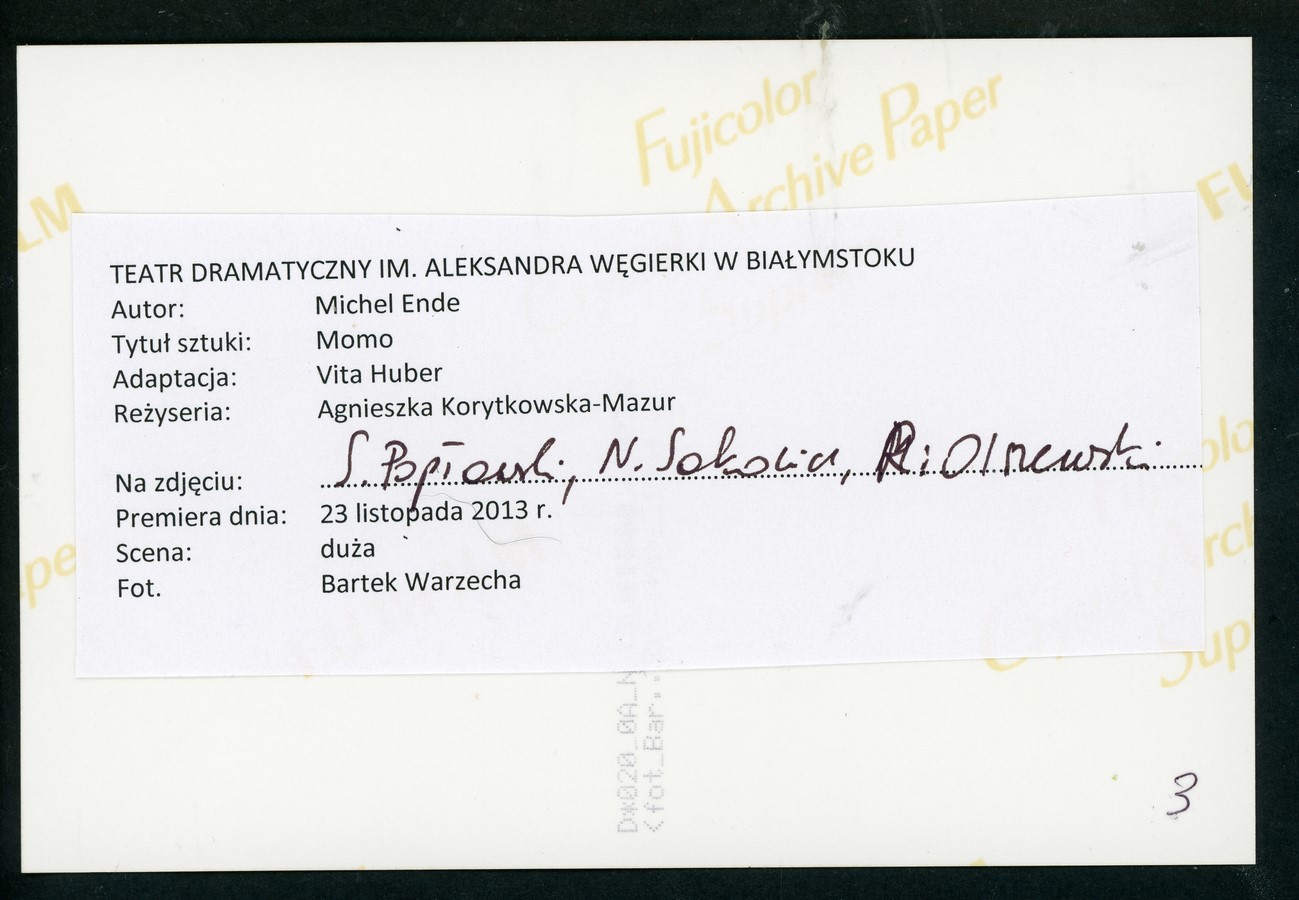 Fujicolor
Archive Paper
LM
FU
TEATR DRAMATYCZNY IM. ALEKSANDRA WĘGIERKI W BIAŁYMSTOKU
Autor: Michel Ende
Tytuł sztuki: Momo
Adaptacja: Vita Huber
Reżyseria: Agnieszka Korytkowska-Mazur
Na zdjęciu: S. Popławski, N. Sokolin, R. Olszewski
Premiera dnia: 23 listopada 2013 r.
Scena: duża
Fot. Bartek Warzecha
D*020_0A_N
<fot_Bar..
3